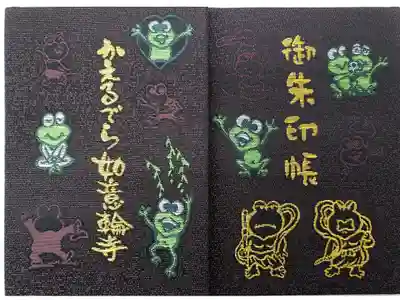 御朱印帳
かえるでら如意輪寺